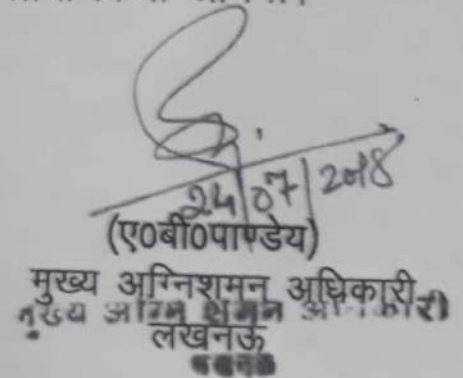 24/07/2018
(ए0बी0पाण्डेय)
मुख्य अग्निशमन अधिकारी
मुख्य अग्नि शमन अधिकारी
लखनऊ